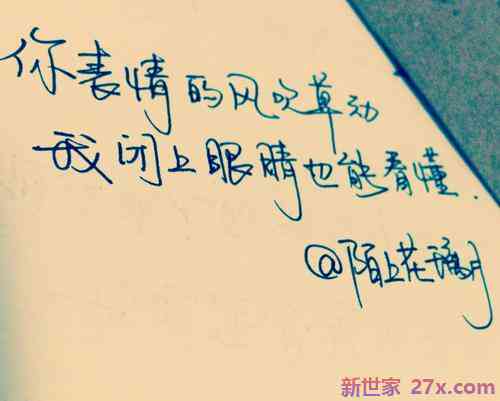 你表情的风吹草动
我闭上眼睛也能看懂.
@陌上花璃月
新世家 27x.com